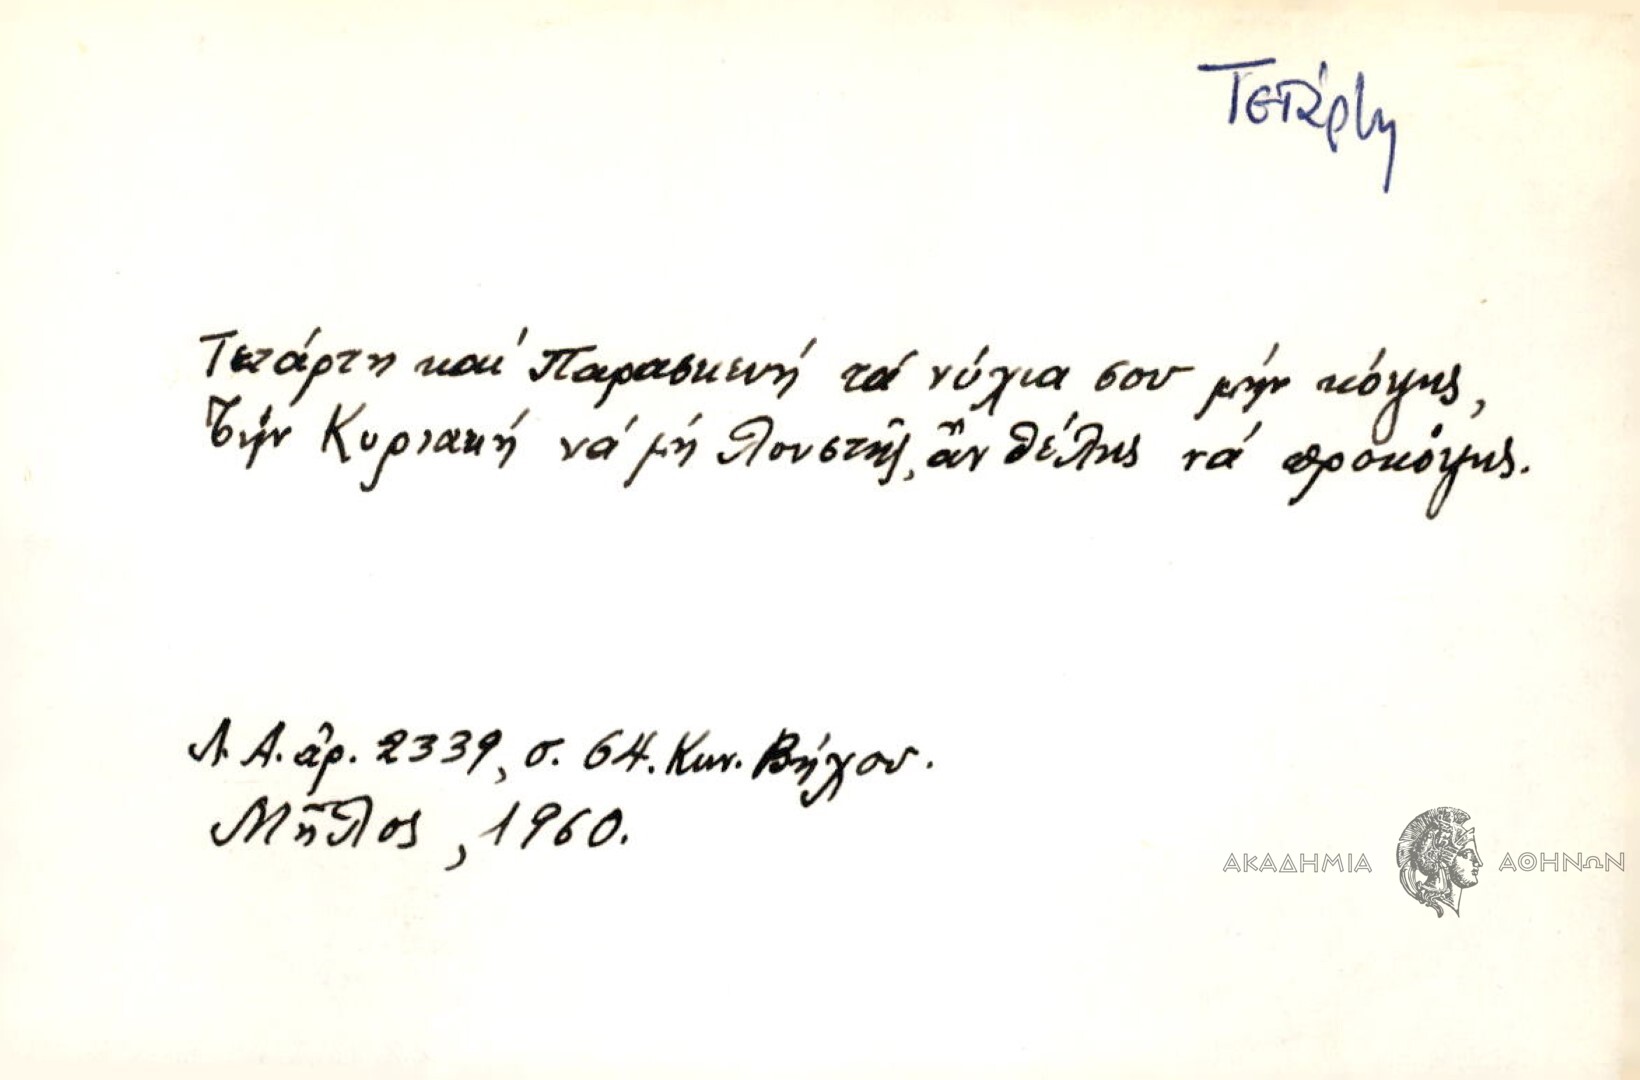 Τετάρτη
Τετάρτη καί Παρασκευή τά νύχια σου μήν κόψης,
τήν Κυριακή νά μή λουστῆς, ἄν θέλης νά προκόψης.
Λ. Α. ἀρ. 2339, σ. 64. Κων. Βήχου.
Μῆλος, 1960.
ΑΚΑΔΗΜΙΑ ΑΘΗΝΩΝ